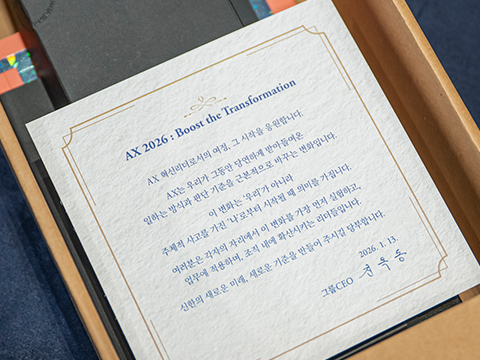 AX 2026 : Boost the Transformation
AX 혁신리더로서의 여정, 그 시작을 응원합니다.
AX는 우리가 그동안 당연하게 받아들여온
일하는 방식과 판단 기준을 근본적으로 바꾸는 변화입니다.
이 변화는 '우리'가 아니라
주체적 사고를 가진 '나'로부터 시작될 때 의미를 가집니다.
여러분은 각자의 자리에서 이 변화를 가장 먼저 실험하고,
업무에 적용하며, 조직 내에 확산시키는 리더들입니다.
신한의 새로운 미래, 새로운 기준을 만들어 주시길 당부합니다.
2026. 1. 13.
그룹CEO